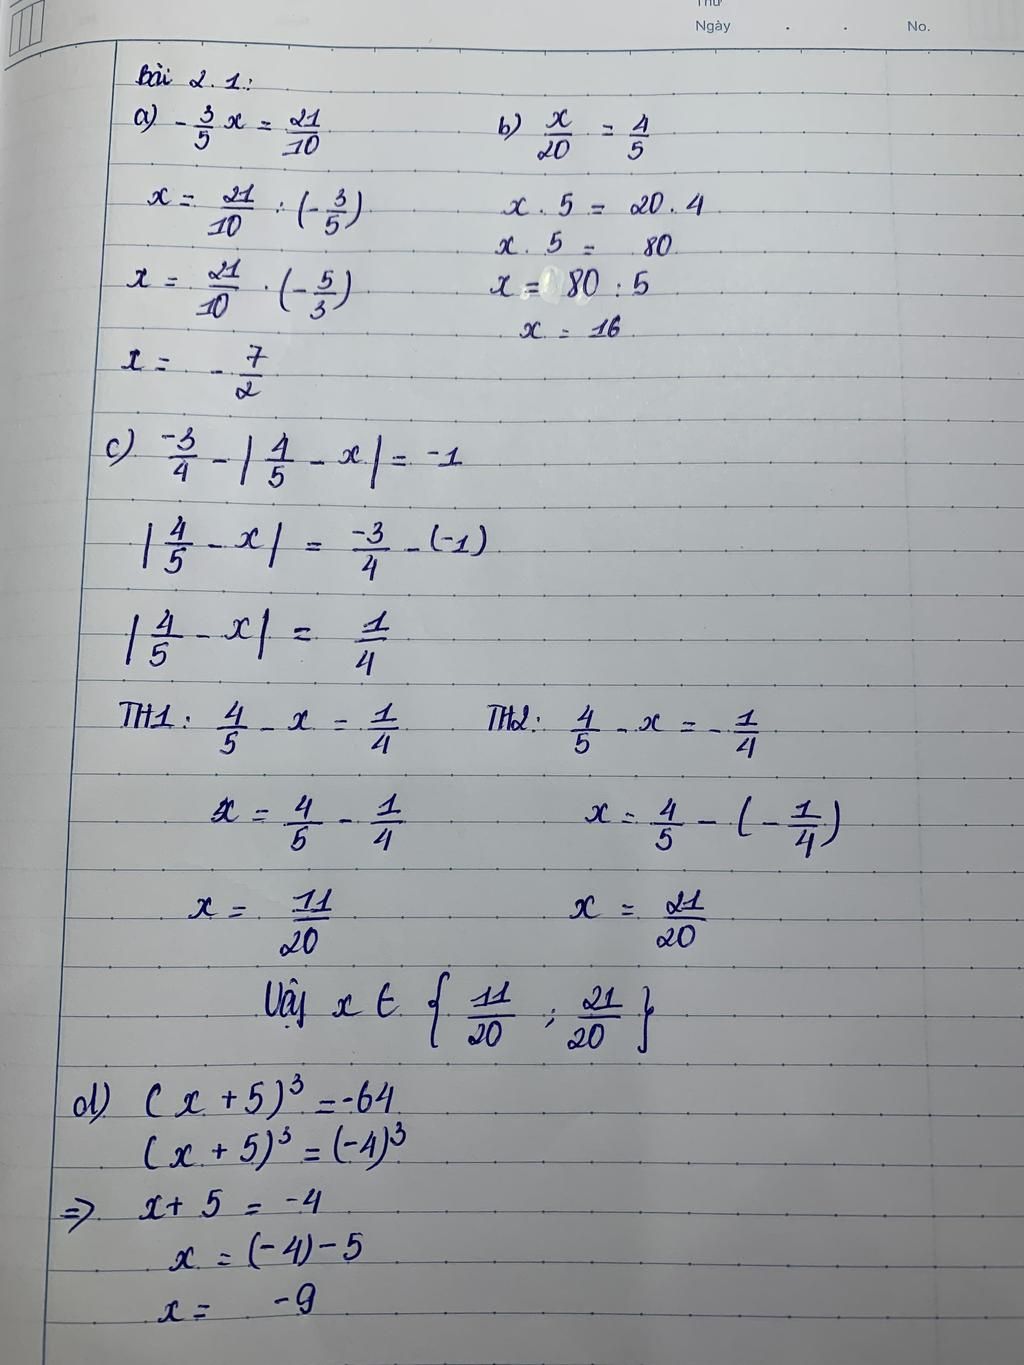 Thứ
Ngày . . No.
Bài 2.1:
a) -3/5 x = 21/10
x = 21/10 : (-3/5)
x = 21/10 . (-5/3)
x = -7/2
b) x/20 = 4/5
x . 5 = 20 . 4
x . 5 = 80
x = 80 : 5
x = 16
c) -3/4 - |4/5 - x| = -1
|4/5 - x| = -3/4 - (-1)
|4/5 - x| = 1/4
TH1: 4/5 - x = 1/4
x = 4/5 - 1/4
x = 11/20
TH2: 4/5 - x = -1/4
x = 4/5 - (-1/4)
x = 21/20
Vậy x ∈ {11/20 ; 21/20}
d) (x + 5)³ = -64
(x + 5)³ = (-4)³
=> x + 5 = -4
x = (-4) - 5
x = -9